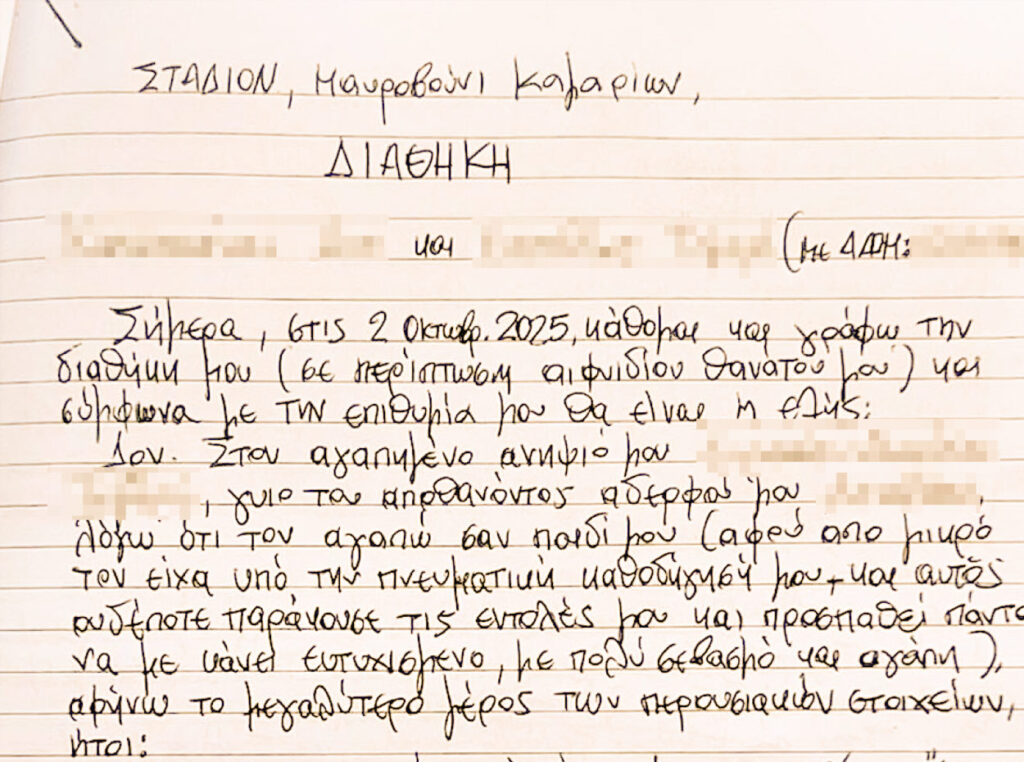 ΣΤΑΔΙΟΝ, Μαυροβούνι Καμαρίων,
ΔΙΑΘΗΚΗ
και (με ΑΦΜ:
Σήμερα, στις 2 Οκτωβρ. 2025, κάθομαι και γράφω την
διαθήκη μου (σε περίπτωση αιφνιδίου θανάτου μου) και
σύμφωνα με την επιθυμία μου θα είναι η εξής:
1ον. Στον αγαπημένο ανηψιό μου
, γυιο του αποθανόντος αδερφού μου ,
λόγω ότι τον αγαπώ σαν παιδί μου (αφού απο μικρό
τον είχα υπό την πνευματική καθοδήγησή μου, και αυτός
ουδέποτε παράκουσε τις εντολές μου και προσπαθεί πάντα
να με κάνει ευτυχισμένο, με πολύ σεβασμό και αγάπη),
αφήνω το μεγαλύτερο μέρος των περουσιακών στοιχείων,
ήτοι: